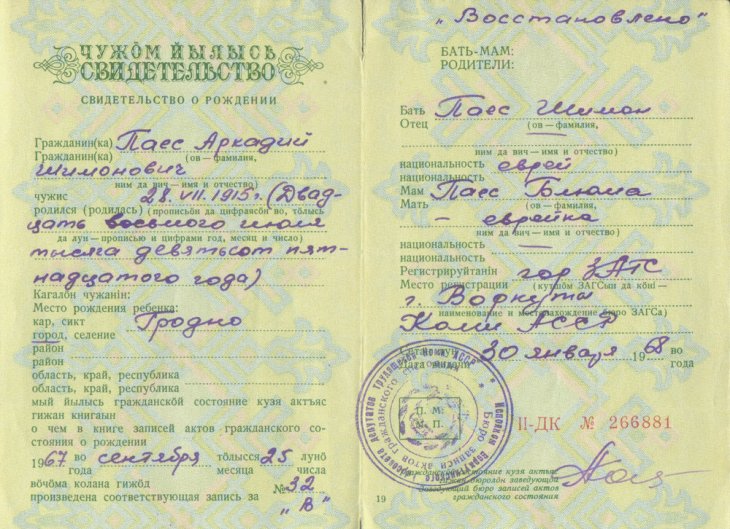 ЧУЖӦМ ЙЫЛЫСЬ
СВИДЕТЕЛЬСТВО
СВИДЕТЕЛЬСТВО О РОЖДЕНИИ
Гражданин(ка) Паес Аркадий
Гражданин(ка) (ов — фамилия,
Шимонович
ним да вич — имя и отчество)
чужис 28. VII. 1915 г. (Двад-
родился (родилась) (прописьӧн да цифраясӧн во, тӧлысь
цать восьмого июля
да лун — прописью и цифрами год, месяц и число)
тысяча девятьсот пят-
надцатого года)
Кагалӧн чужанін:
Место рождения ребенка:
кар, сикт Гродно
город, селение
район
район
область, край, республика
область, край, республика
мый йылысь гражданскӧй состояние кузя актъяс
гижан книгаын
о чем в книге записей актов гражданского со-
стояния о рождении
1967 во сентября тӧлысся 25 лунӧ
года месяца числа
вӧчӧма колана гижӧд № 32
произведена соответствующая запись за „В"
„Восстановлено"
БАТЬ-МАМ:
РОДИТЕЛИ:
Бать Паес Шимон
Отец (ов — фамилия,
ним да вич — имя и отчество)
национальность еврей
национальность
Мам Паес Блюма
Мать (ов — фамилия,
— еврейка
ним да вич — имя и отчество)
национальность —
национальность
Регистрируйтанін гор ЗАГС
Место регистрации (кутшӧм ЗАГСын да кӧні —
г. Воркуты
наименование и местонахождение бюро ЗАГСа)
Коми АССР
30 января 1968 во
Дата выдачи года
П. М.
М. П.
II-ДК № 266881
гражданскӧй состояние кузя актъяс
гижан бюроӧн заведующӧй
Заведующий бюро записей актов
гражданского состояния
19